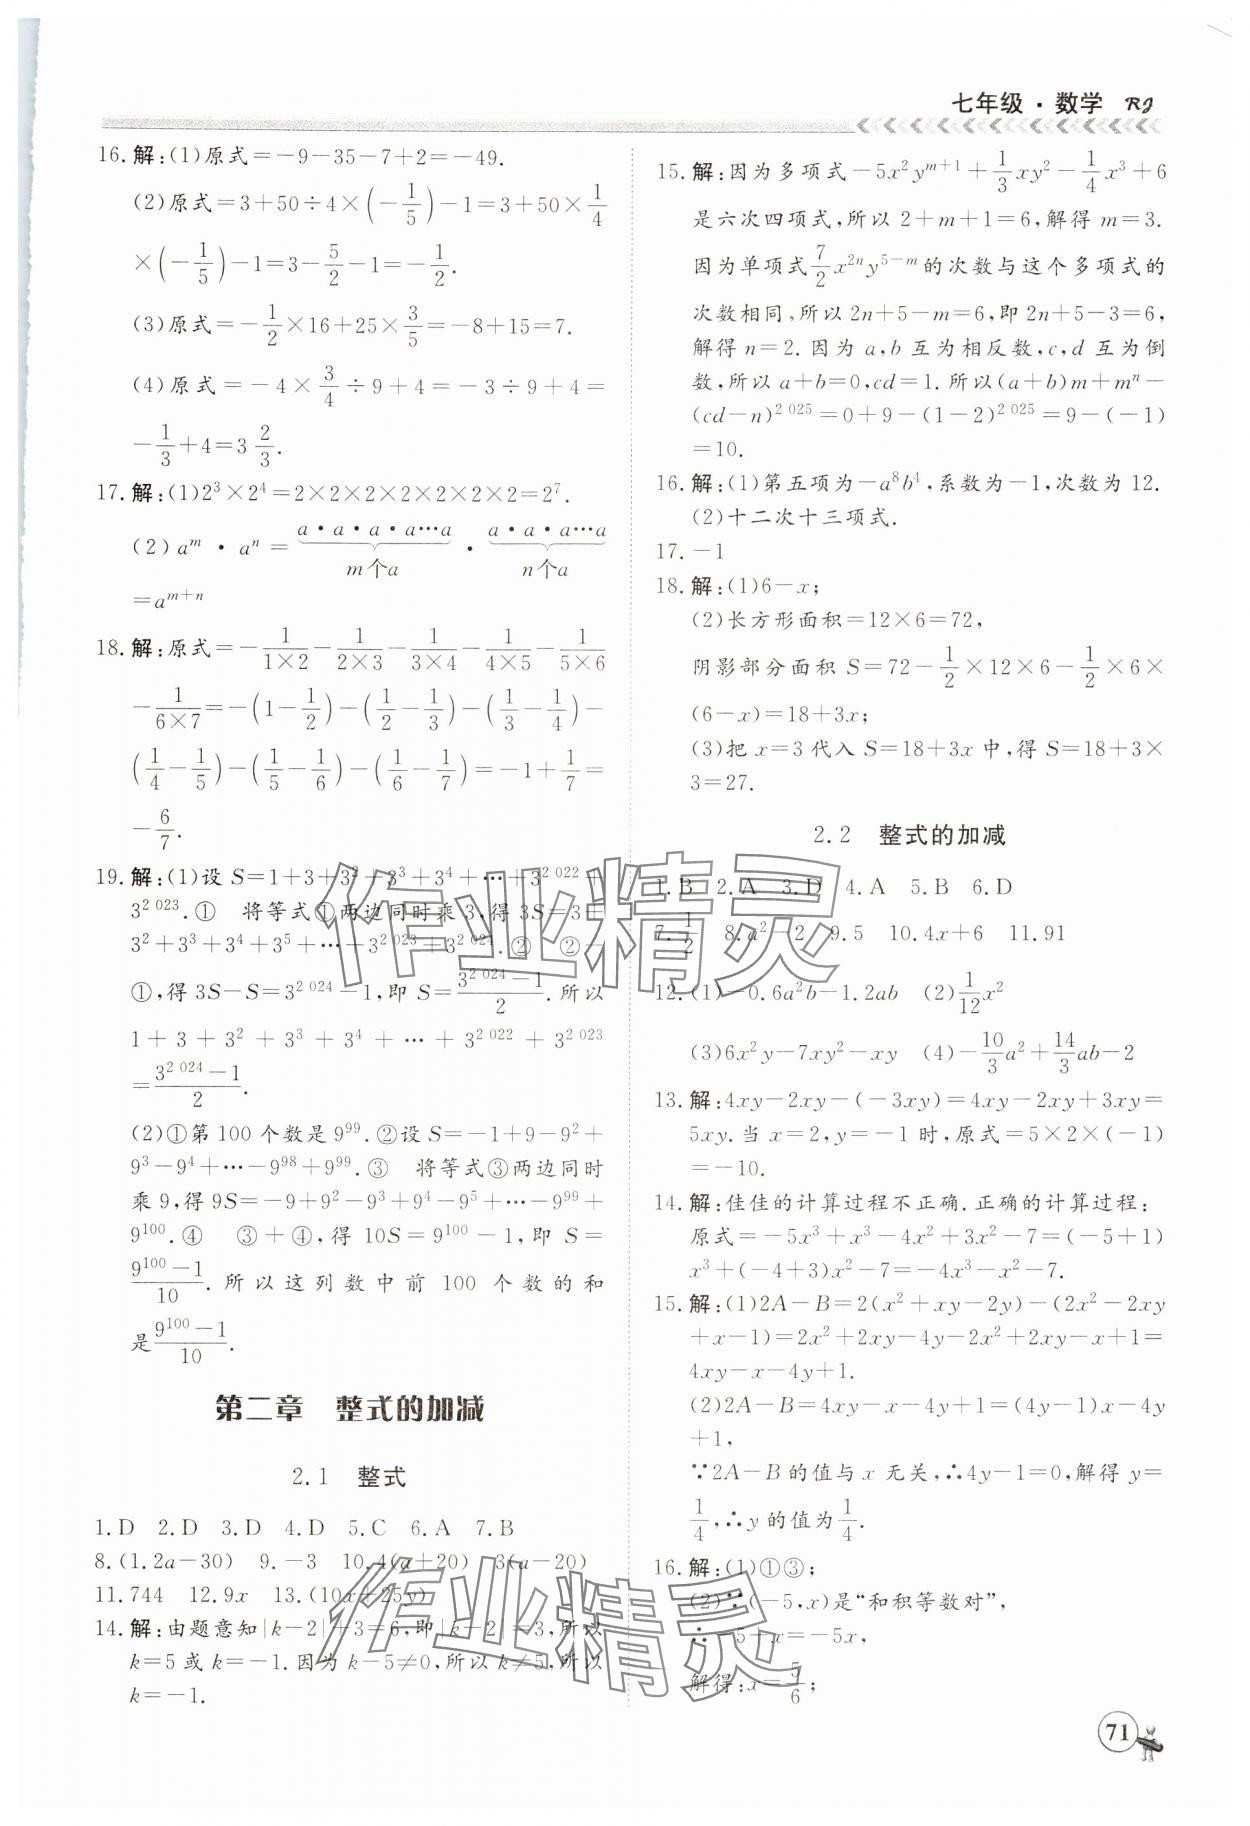 七年级·数学 RJ
16.解:(1)原式=-9-35-7+2=-49.
(2)原式=3+50÷4×(-1/5)-1=3+50×1/4
×(-1/5)-1=3-5/2-1=-1/2.
(3)原式=-1/2×16+25×3/5=-8+15=7.
(4)原式=-4×3/4÷9+4=-3÷9+4=
-1/3+4=3 2/3.
17.解:(1)2³×2⁴=2×2×2×2×2×2×2=2⁷.
(2)aᵐ·aⁿ=a·a·a·a…a·a·a·a…a
m个a n个a
=aᵐ⁺ⁿ
18.解:原式=-1/(1×2)-1/(2×3)-1/(3×4)-1/(4×5)-1/(5×6)
-1/(6×7)=-(1-1/2)-(1/2-1/3)-(1/3-1/4)-
(1/4-1/5)-(1/5-1/6)-(1/6-1/7)=-1+1/7=
-6/7.
19.解:(1)设S=1+3+3²+3³+3⁴+…+3^2 022+
3^2 023.① 将等式①两边同时乘3,得3S=3+
3²+3³+3⁴+3⁵+…+3^2 023+3^2 024.② ②-
①,得3S-S=3^2 024-1,即S=(3^2 024-1)/2.所以
1+3+3²+3³+3⁴+…+3^2 022+3^2 023
=(3^2 024-1)/2.
(2)①第100个数是9⁹⁹.②设S=-1+9-9²+
9³-9⁴+…-9⁹⁸+9⁹⁹.③ 将等式③两边同时
乘9,得9S=-9+9²-9³+9⁴-9⁵+…-9⁹⁹+
9¹⁰⁰.④ ③+④,得10S=9¹⁰⁰-1,即S=
(9¹⁰⁰-1)/10.所以这列数中前100个数的和
是(9¹⁰⁰-1)/10.
第二章 整式的加减
2.1 整式
1.D 2.D 3.D 4.D 5.C 6.A 7.B
8.(1.2a-30) 9.-3 10.4(a+20) 3(a-20)
11.744 12.9x 13.(10x+25y)
14.解:由题意知|k-2|+3=6,即|k-2|=3,所以
k=5或k=-1.因为k-5≠0,所以k≠5,所以
k=-1.
15.解:因为多项式-5x²yᵐ⁺¹+1/3xy²-1/4x³+6
是六次四项式,所以2+m+1=6,解得m=3.
因为单项式7/2x²ⁿy⁵⁻ᵐ的次数与这个多项式的
次数相同,所以2n+5-m=6,即2n+5-3=6,
解得n=2.因为a,b互为相反数,c,d互为倒
数,所以a+b=0,cd=1.所以(a+b)m+mⁿ-
(cd-n)^2 025=0+9-(1-2)^2 025=9-(-1)
=10.
16.解:(1)第五项为-a⁸b⁴,系数为-1,次数为12.
(2)十二次十三项式.
17.-1
18.解:(1)6-x;
(2)长方形面积=12×6=72,
阴影部分面积S=72-1/2×12×6-1/2×6×
(6-x)=18+3x;
(3)把x=3代入S=18+3x中,得S=18+3×
3=27.
2.2 整式的加减
1.B 2.A 3.D 4.A 5.B 6.D
7.1/2 8.a²-2 9.5 10.4x+6 11.91
12.(1)-0.6a²b-1.2ab (2)1/12x²
(3)6x²y-7xy²-xy (4)-10/3a²+14/3ab-2
13.解:4xy-2xy-(-3xy)=4xy-2xy+3xy=
5xy.当x=2,y=-1时,原式=5×2×(-1)
=-10.
14.解:佳佳的计算过程不正确.正确的计算过程:
原式=-5x³+x³-4x²+3x²-7=(-5+1)
x³+(-4+3)x²-7=-4x³-x²-7.
15.解:(1)2A-B=2(x²+xy-2y)-(2x²-2xy
+x-1)=2x²+2xy-4y-2x²+2xy-x+1=
4xy-x-4y+1.
(2)2A-B=4xy-x-4y+1=(4y-1)x-4y
+1,
∵2A-B的值与x无关,∴4y-1=0,解得y=
1/4,∴y的值为1/4.
16.解:(1)①③;
(2)∵(-5,x)是“和积等数对”,
∴-5+x=-5x,
解得:x=5/6;
71
作业精灵
作业精灵